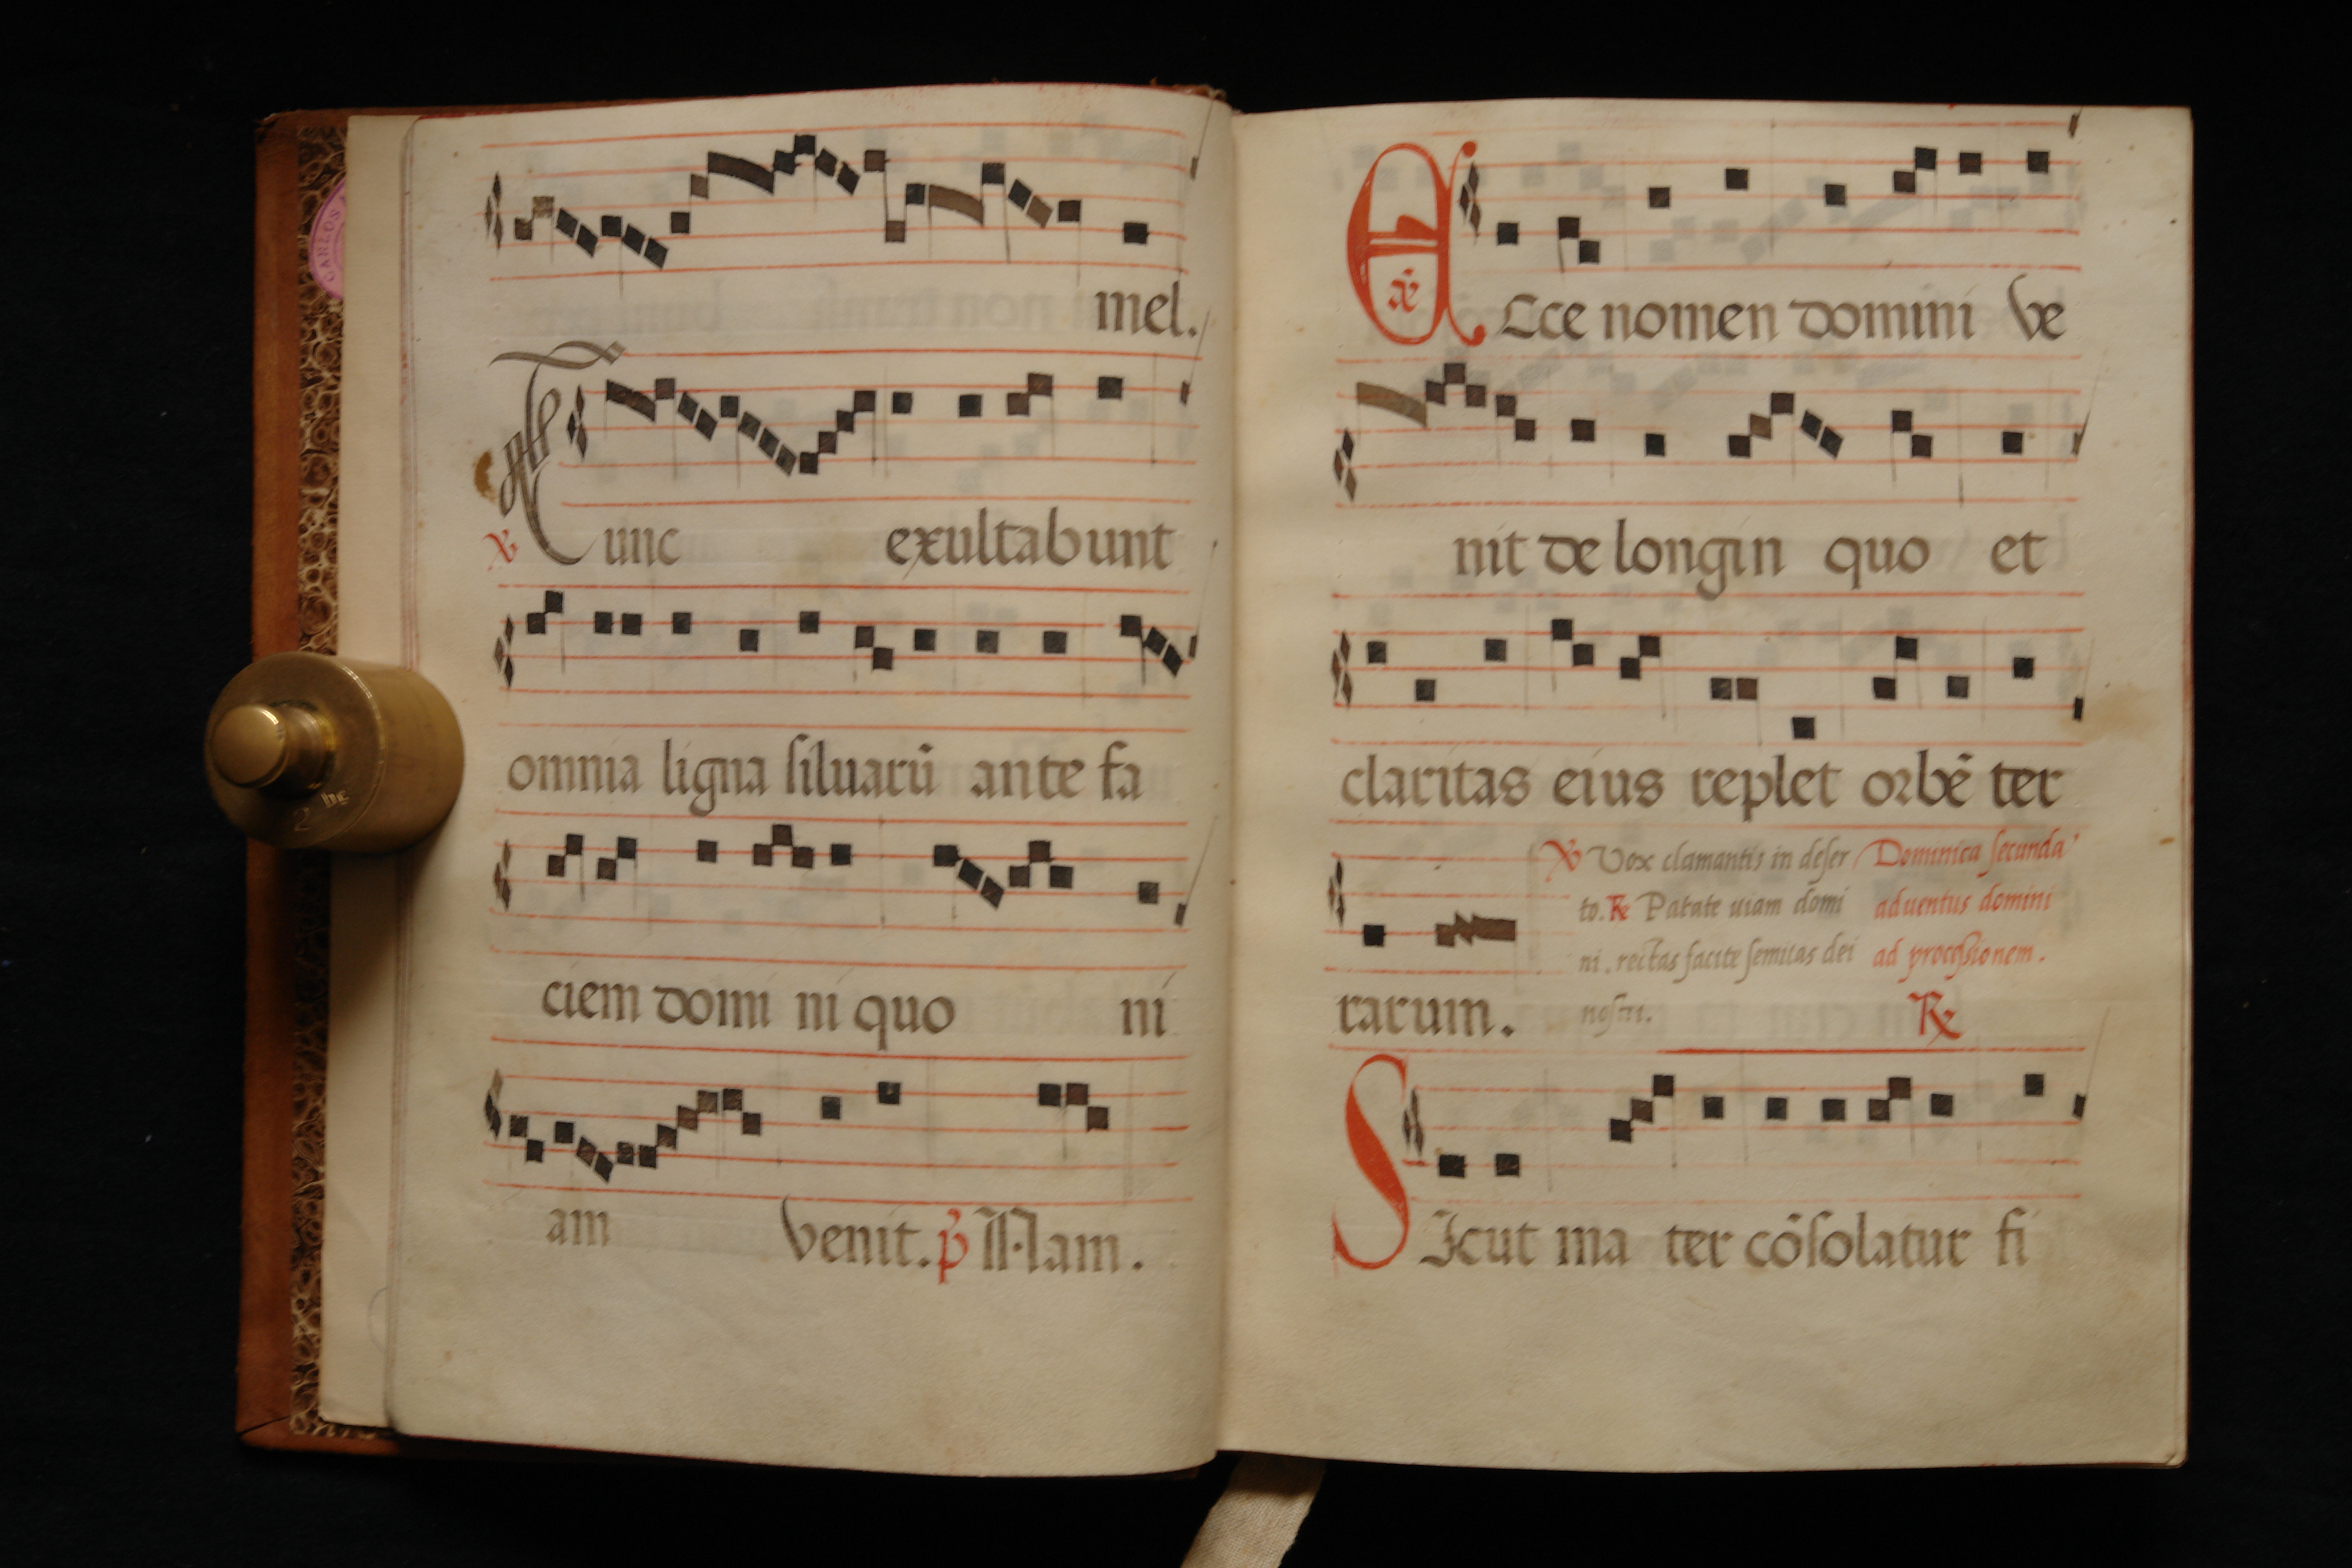 mel.
℣ Tunc exultabunt
omnia ligna ſiluarū ante fa
ciem domi ni quo ni
am venit. p̄ Nam.
CARLOS
2 kg
a᷈
ECce nomen domini ve
nit de longin quo et
claritas eius replet orbē ter
rarum.
℣ Vox clamantis in deſer
to. ℟ Parate uiam domi
ni. rectas facite ſemitas dei
noſtri.
Dominica ſecunda
aduentus domini
ad proceſſionem.
℟
SIcut ma ter cōſolatur fi